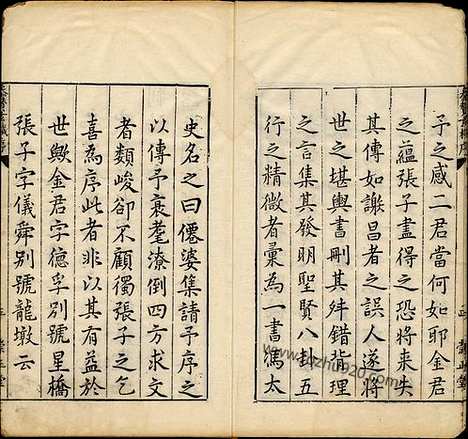 子之感二君當何如耶金君
之蘊張子盡得之恐將来失
其傳如謝昌者之誤人遂将
世之堪輿書刪其舛錯背理
之言集其發明聖賢八卦五
行之精微者彙為一書馮太
史名之曰僊婆集請予序之
以傳予衰耄潦倒四方求文
者類峻卻不顧獨張子之乞
喜為序此者非以其有益於
世歟金君字德孚别號星橋
張子字儀舜别號龍墩云